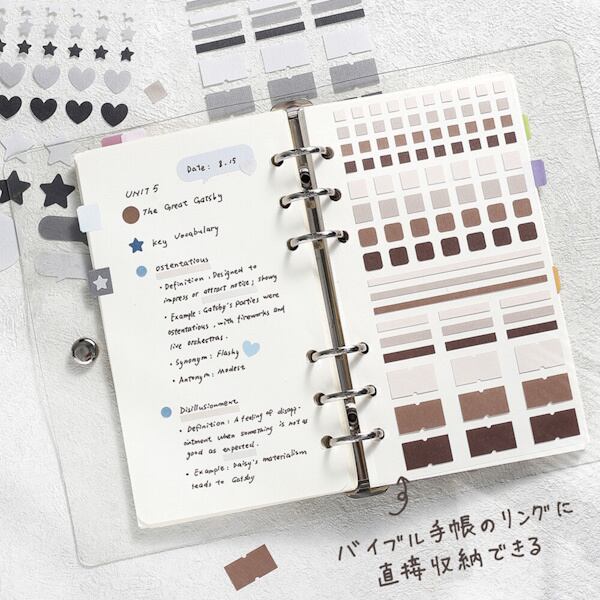 Date: 8.15
UNIT 5
The Great Gatsby
key Vocabulary
Ostentatious
• Definition: Designed to
impress or attract notice; showy
• Example: Gatsby's parties were
ostentatious, with fireworks and
live orchestras.
• Synonym: Flashy
• Antonym: Modest
Disillusionment
• Definition: A feeling of disapp-
ointment when something is not as
good as expected.
• Example: Daisy's materialism
leads to Gatsby
バイブル手帳のリングに
直接収納できる